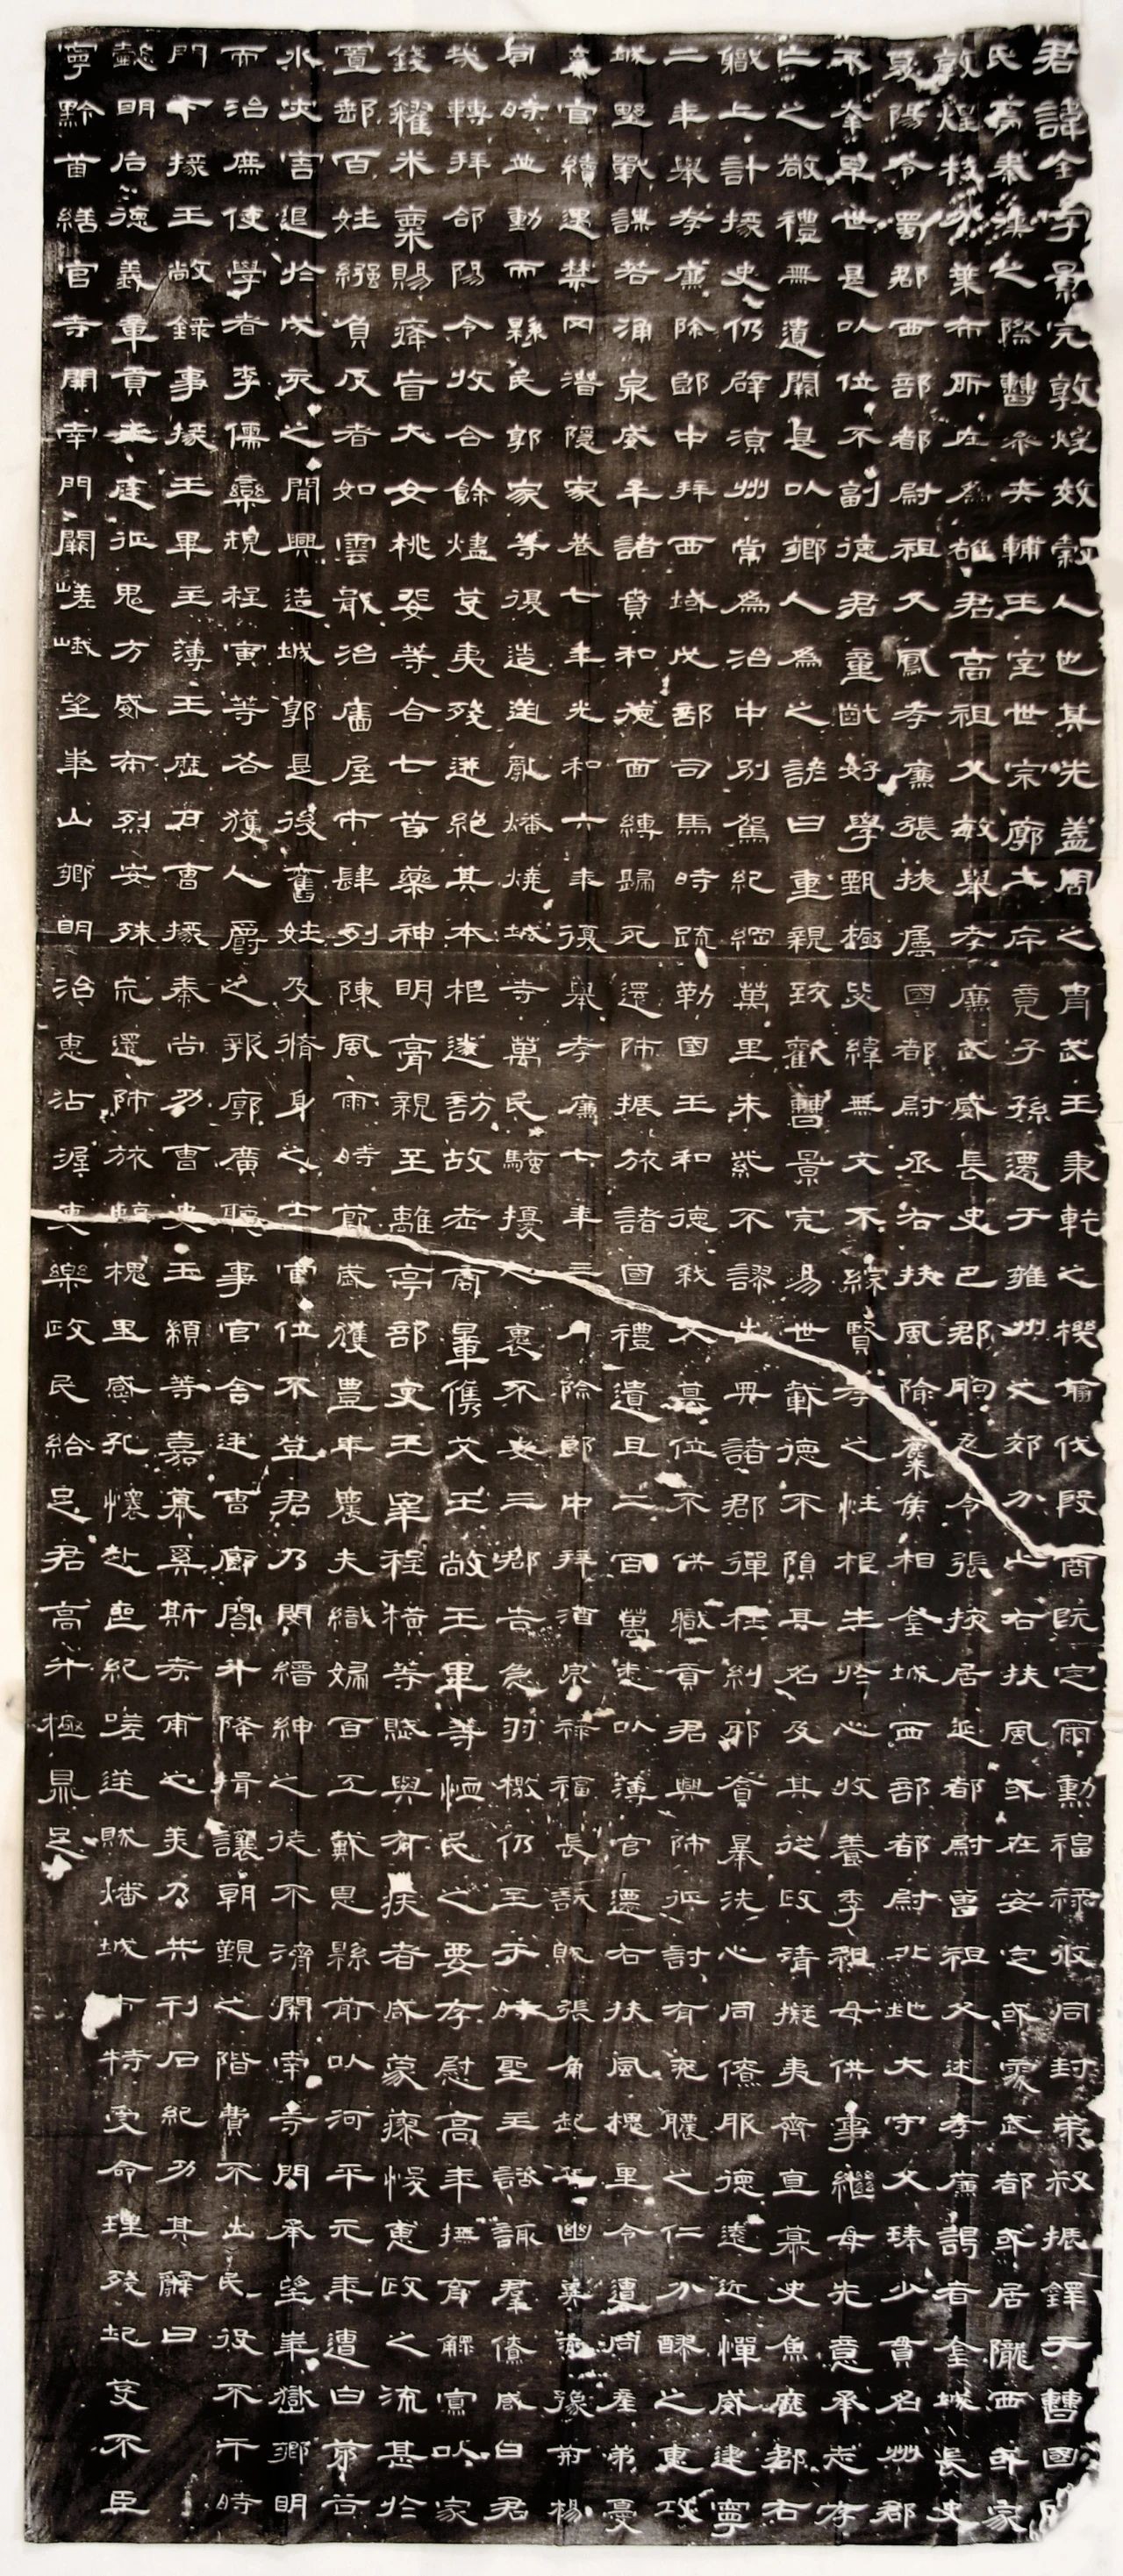 君諱全字景完敦煌效穀人也其先蓋周之冑武王秉乾之機翦伐殷商既定爾勳福祿攸同封弟叔振鐸于曹國
氏焉秦漢之際曹參夾輔王室世宗廓土斥竟子孫遷于雍州之郊分止右扶風或在安定或處武都或居隴西或家
敦煌枝分葉布所在為雄君高祖父敏舉孝廉武威長史巴郡朐忍令張掖居延都尉曾祖父述孝廉謁者金城長史
夏陽令蜀郡西部都尉祖父鳳孝廉張掖屬國都尉丞右扶風隃麋侯相金城西部都尉北地大守父琫少貫名州郡
不幸早世是以位不副德君童齔好學甄極毖緯無文不綜賢孝之性根生於心收養季祖母供事繼母先意承志存
亡之敬禮無遺闕是以鄉人為之諺曰重親致歡曹景完易世載德不隕其名及其從政清擬夷齊直慕史魚歷郡右
職上計掾史仍辟涼州常為治中別駕紀綱萬里朱紫不謬出典諸郡彈枉糾邪貪暴洗心同僚服德遠近憚威建寧
二年舉孝廉除郎中拜西域戊部司馬時疏勒國王和德弒父篡位不供職貢君興師征討有兖膿之仁分醪之惠攻
城野戰謀若涌泉威牟諸賁和德面縛歸死還師振旅諸國禮遺且二百萬悉以薄官遷右扶風槐里令遭同產弟憂
棄官續遇禁冈潛隱家巷七年光和六年復舉孝廉七年三月除郎中拜酒泉祿福長訞賊張角起兵幽冀兖豫荊楊
同時並動而縣民郭家等復造逆亂燔燒城寺萬民騷擾人裹不安三郡告急羽檄仍至于時聖主諮諏群僚咸曰君
哉轉拜郃陽令收合餘燼芟夷殘迸絕其本根遂訪故老商量儁艾王敞王畢等恤民之要存慰高年撫育鰥寡以家
錢糴米粟賜癃盲大女桃婓等合七首藥神明膏親至離亭部吏王宰程橫等賦與有疾者咸蒙瘳悛惠政之流甚於
置郵百姓繈負反者如雲戢治廧屋市肆列陳風雨時節歲獲豐年農夫織婦百工戴恩縣前以河平元年遭白茅谷
水災害退於戊亥之間興造城郭是後舊姓及脩身之士官位不登君乃閔縉紳之徒不濟開南寺門承望華嶽鄉明
而治庶使學者李儒欒規程寅等各獲人爵之報廓廣聽事官舍廷曹廊閣升降揖讓朝覲之階費不出民役不干時
門下掾王敞錄事掾王畢主薄王歷戶曹掾秦尚功曹史王顓等嘉慕奚斯考甫之美乃共刊石紀功其辭曰
懿明后德義章貢王庭征鬼方威布烈安殊荒還師旅臨槐里感孔懷赴喪紀嗟逆賊燔城市特受命理殘圮芟不臣
寧黔首繕官寺開南門闕嵯峨望華山鄉明治惠沾渥吏樂政民給足君高升極鼎足